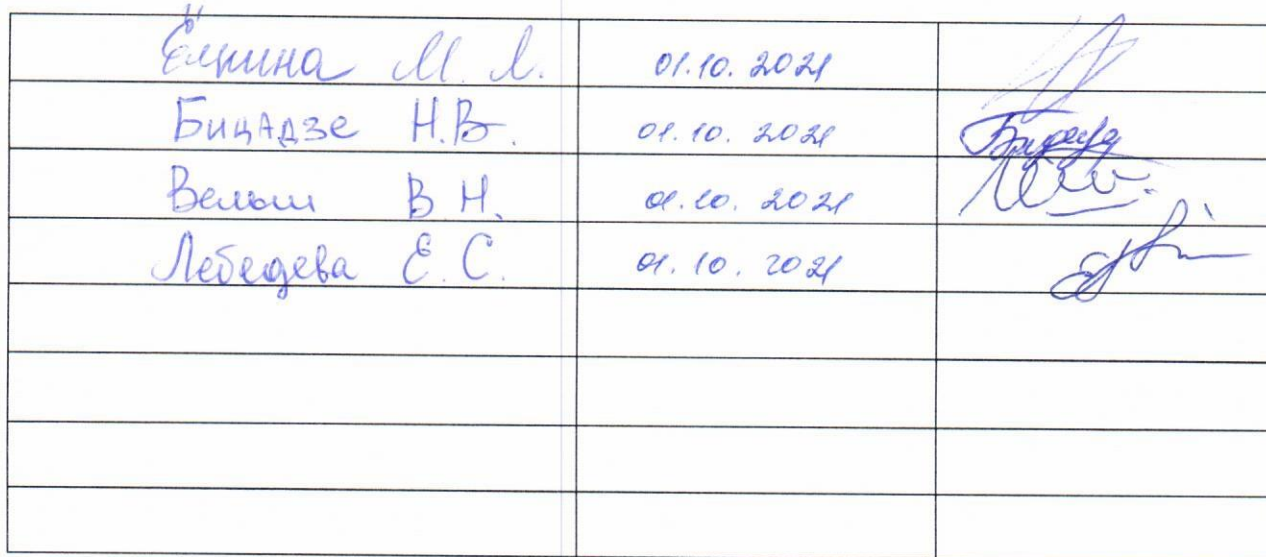 Ёлкина М. Л. 01.10.2021
Бицадзе Н.В. 01.10.2021
Велыш В Н. 01.10.2021
Лебедева Е. С. 01.10.2021